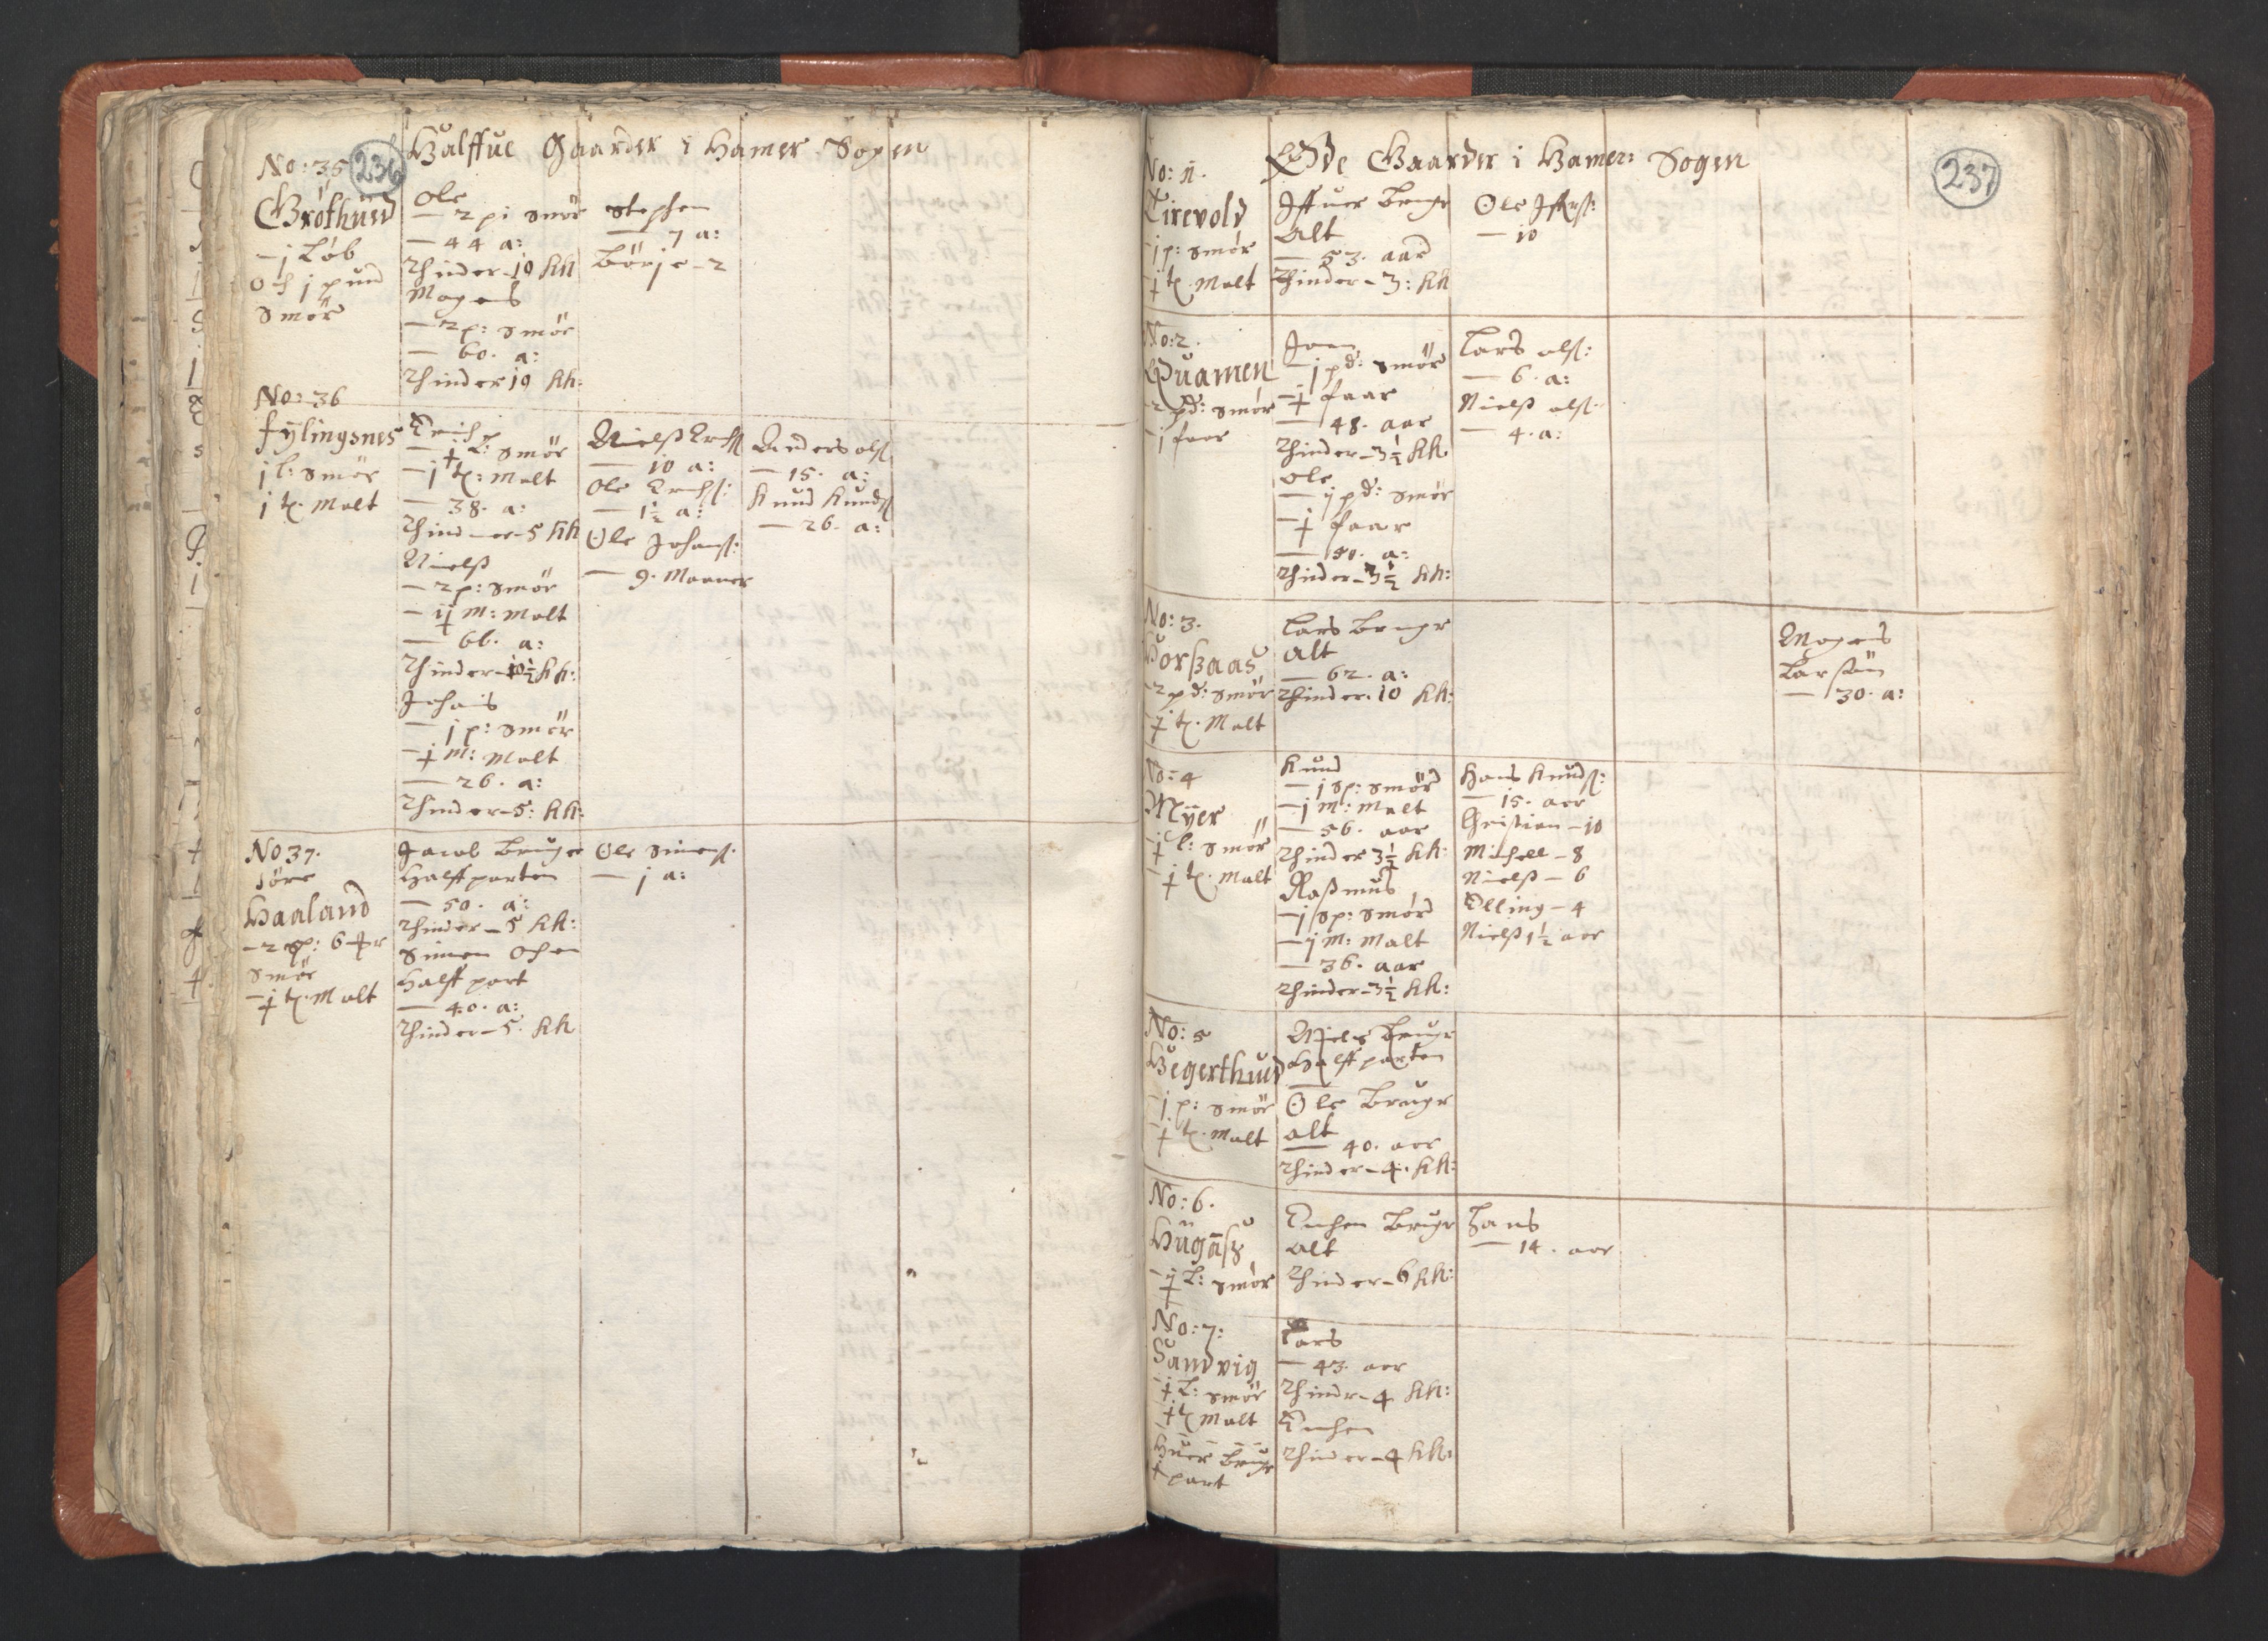 236
Halffue Gaarder i Hamer Sogen
No: 35
Gröthüed
- j Löb
och j pund
Smör
Ole
- 2 p: Smör
- 44 a:
Thinder - 19 KH
Mogens
- 2 p: Smör
- 60. a:
Thinder 19 KH:
Stephen
- 7 a:
Börje - 2
No: 36
fÿlingsnes
j l: Smör
j t. Malt
Erich
L: Smör
- j t: Malt
- 38. a:
Thinder - 5 KH
Nielß
- 2 p: Smör
- ij M: Malt
- 66. a:
Thinder - 10½ KH:
Johans
- j p: Smör
- j M: Malt
- 26. a:
Thinder - 5: KH:
Nielß Erichß
- 10 a:
Ole Erichß:
- 1½ a:
Ole Johanß:
- 9. Maaner
Anders olß
- 15. a:
Knud Knudß
- 26. a:
No 37.
Haaland
Smör
- j t. Malt
Jacob Bruger
Halffparten
- 50. a:
Thinder - 5 KH:
Simen och en
Halff part
- 40. a:
Thinder - 5. KH
Ole Simenß.
- j a:
237
Øde Gaarder i Hamer: Sogen
No: 1.
Tirevold
- j p: Smör
- j t. Malt
Iffuer Bruger
Alt
- 53. aar
Thinder - 3: KH
Ole Iffuerß:
- 10
No: 2.
Huamen
- 2 pd: Smör
- j faar
Joen
- j pd: Smör
- j faar
- 48. aar
Thinder - 3½ KH
Ole
- j pd: Smör
- j faar
- 50. a:
Thinder - 3½ KH:
Lars olß:
- 6. a:
Nielß olß:
- 4. a:
No: 3.
Horßaas
- 2 pd: Smör
- j t. Malt
Lars Bruger
Alt
- 62. a:
Thinder. 10 KH:
Mogens
Larsøn
- 30. a:
No: 4
Mÿer
- j l: Smör
- j t. Malt
Knud
- j sp: Smör
- j M: Malt
- 56. aar
Thinder 3½ KH:
Raßmus
- j sp: Smör
- j M: Malt
- 36. aar
Thinder - 3½ KH:
Hans Knudß:
- 15. aar
Christian - 10
Michell - 8
Nielß - 6
Elling - 4
Nielß 1½ aar
No: 5
Hegerthued
- j p: Smör
- j t. Malt
Niels Bruger
Halffparten
Ole Bruger
alt
- 40. aar
Thinder - 4. KH:
No: 6.
- j L: Smör
Enchen Bruger
alt
Thinder - 6 KH:
Hans
- 14. aar
No: 7:
Sandvig
- j L: Smör
- j t Malt
Huer Bruger
part
Lars
- 43. aar
Thinder - 4 KH:
Enchen
Thinder - 4 KH: